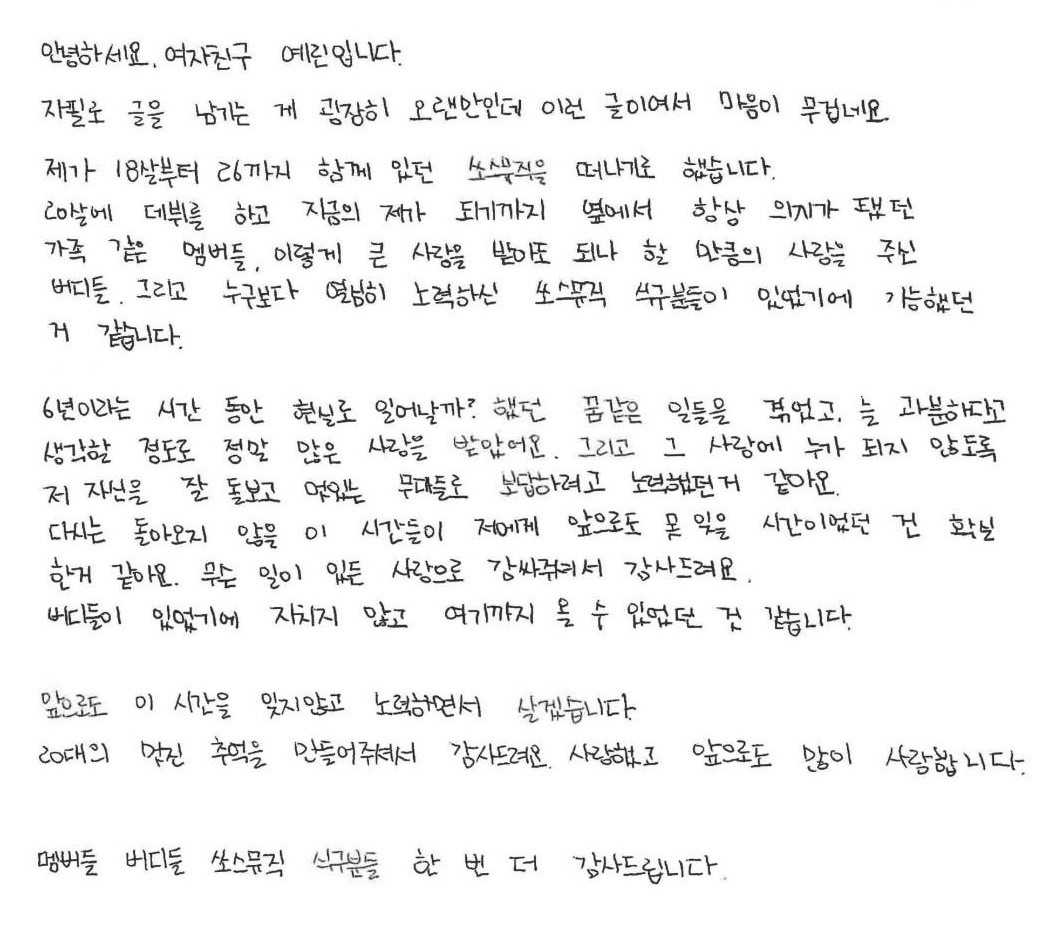 안녕하세요. 여자친구 예린입니다.
자필로 글을 남기는 게 굉장히 오랜만인데 이런 글이여서 마음이 무겁네요.
제가 18살부터 26까지 함께 있던 쏘스뮤직을 떠나기로 했습니다.
20살에 데뷔를 하고 지금의 제가 되기까지 옆에서 항상 의지가 됐던
가족 같은 멤버들, 이렇게 큰 사랑을 받아도 되나 할 만큼의 사랑을 주신
버디들. 그리고 누구보다 열심히 노력하신 쏘스뮤직 식구분들이 있었기에 가능했던
거 같습니다.
6년이라는 시간 동안 현실로 일어날까? 했던 꿈같은 일들을 겪었고, 늘 과분하다고
생각할 정도로 정말 많은 사랑을 받았어요. 그리고 그 사랑에 누가 되지 않도록
저 자신을 잘 돌보고 멋있는 무대들로 보답하려고 노력했던거 같아요.
다시는 돌아오지 않을 이 시간들이 저에게 앞으로도 못 잊을 시간이었던 건 확실
한거 같아요. 무슨 일이 있든 사랑으로 감싸줘서 감사드려요.
버디들이 있었기에 지치지 않고 여기까지 올 수 있었던 건 같습니다.
앞으로도 이 시간을 잊지않고 노력하면서 살겠습니다.
20대의 멋진 추억을 만들어주셔서 감사드려요. 사랑했고 앞으로도 많이 사랑합니다.
멤버들 버디들 쏘스뮤직 식구분들 한 번 더 감사드립니다.